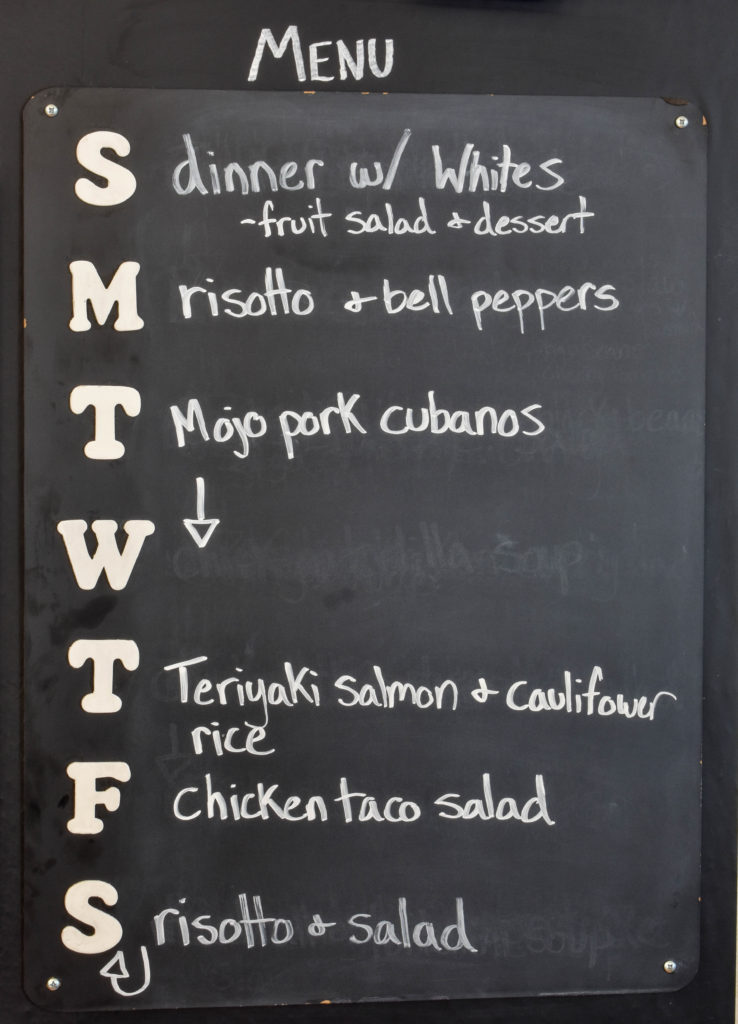 MENU
S dinner w/ Whites
-fruit salad & dessert
M risotto & bell peppers
T Mojo pork cubanos
W
T Teriyaki salmon & Cauliflower
rice
F chicken taco salad
S risotto & salad